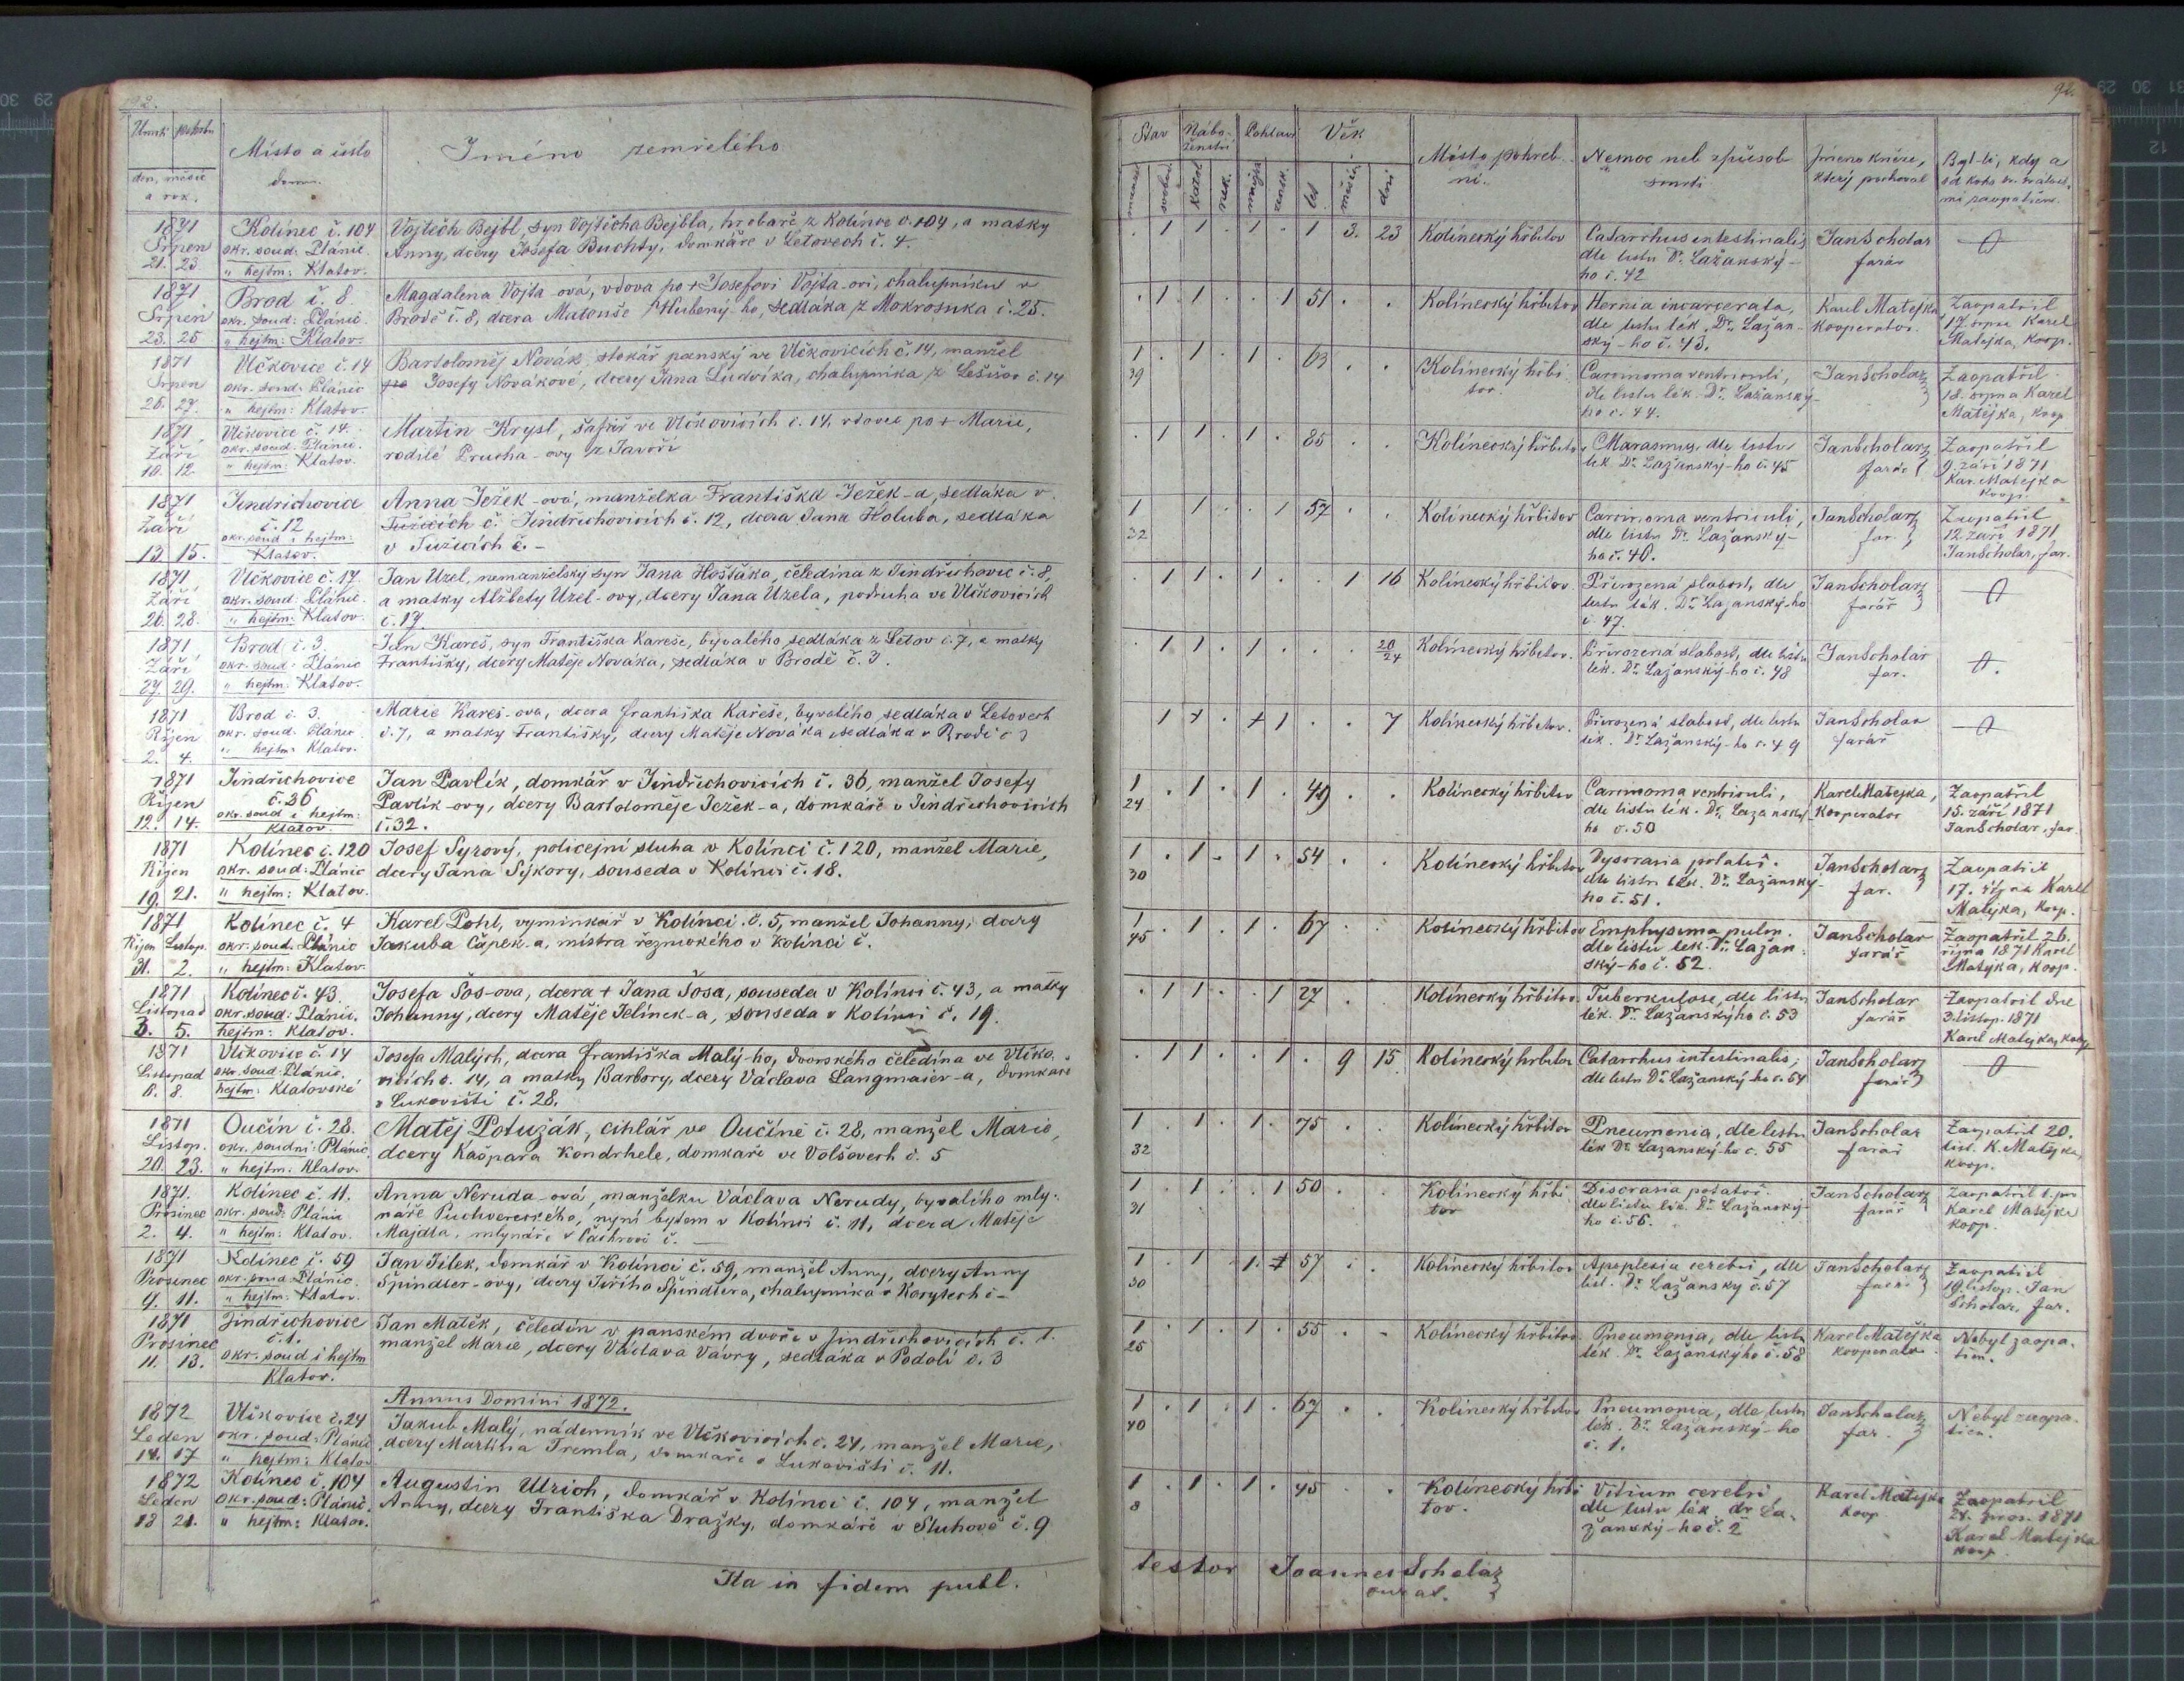 Místo a číslo
domu.
Jméno zemřelého
den, měsíc
a rok.
1871 Kolínec č. 104 Vojtěch Bejbl, syn Vojtěcha Bejbla, hrobaře z Kolínce č. 104, a matky
Srpen okr. soud: Plánic Anny, dcery Josefa Buchty, domkáře v Letovech č. 4.
21. 23 " hejtm: Klatov.
1871 Brod č. 8 Magdalena Vojta-ová, vdova po + Josefovi Vojta-ovi, chalupníku v
Srpen okr. soud: Plánic Brodě č. 8, dcera Matouše Hubený-ho, sedláka z Mokrosuka č. 25.
23. 25 " hejtm: Klatov.
1871 Vlčkovice č. 14 Bartoloměj Novák, panský ve Vlčkovicích č. 14, manžel
Srpen okr. soud: Plánic Josefy Novákové, dcery Jana Ludvíka, chalupníka z č. 14
27. " hejtm: Klatov.
1871 Vlčkovice č. 14. Martin Krysl, šafář ve Vlčkovicích č. 14, vdovec po + Marii,
Září okr. soud: Plánic. rodilé Prucha-ovy z Javoří
10. 12. " hejtm: Klatov.
1871 Jindrichovice Anna Ježek-ová, manželka Františka Ježek-a, sedláka v
Září č. 12 č. Jindřichovicích č. 12, dcera Jana Holuba, sedláka
okr. soud i hejtm: v Tužicích č. -
13. 15. Klatov.
1871 Vlčkovice č. 17. Jan Uzel, nemanželský syn Jana Hošťáka, čeledína z Jindřichovic č. 8,
Září okr. soud: Plánic a matky Alžbety Uzel-ovy, dcery Jana Uzela, podruha ve Vlčkovicích
26. 28. " hejtm: Klatov č. 17.
1871 Brod č. 3. Jan Kareš, syn Františka Kareše, bývalého sedláka z Letov č. 7, a matky
Září okr. soud: Plánic Františky, dcery Matěje Nováka, sedláka v Brodě č. 3.
27. 29. " hejtm: Klatov.
1871 Brod č. 3. Marie Kareš-ova, dcera Františka Kareše, byvalého sedláka v Letovech
Říjen okr. soud: Plánic č. 7, a matky Františky, dcery Matěje Nováka sedláka v Brodě č 3
2. 4. " hejtm: Klatov.
1871 Jindřichovice Jan Pavlík, domkář v Jindřichovicích č. 36, manžel Josefy
Říjen č. 36 Pavlík-ovy, dcery Bartoloměje Ježek-a, domkáře v Jindřichovicích
12. 14. okr. soud i hejtm: č. 32.
Klatov.
1871 Kolínec č. 120 Josef Syrový, policejní sluha v Kolínci č. 120, manžel Marie,
Říjen okr. soud: Plánic dcery Jana Sýkory, souseda v Kolínci č. 18.
19. 21. " hejtm: Klatov.
1871 Kolínec č. 4 Karel Pohl, vyminkář v Kolínci č. 5, manžel Johanny, dcery
Říjen Listop. okr. soud: Plánic Jakuba Čápek-a, mistra řeznického v Kolínci č.
31. 2. " hejtm: Klatov.
1871 Kolínec č. 43 Josefa Šos-ova, dcera + Jana Šosa, souseda v Kolínci č. 43, a matky
Listopad okr. soud: Plánic. Johanny, dcery Matěje Jelínek-a, souseda v Kolínci č. 19.
3. 5. hejtm: Klatov.
1871 Vlčkovice č. 14 Josefa Malých, dcera Františka Malý-ho, dvorského čeledína ve Vlčko-
Listopad okr. soud: Plánic. vicích č. 14, a matky Barbory, dcery Václava Langmaier-a, domkáře
6. 8. hejtm: Klatovské v Lukovišti č. 28.
1871 Oučín č. 28. Matěj Potužák, cihlář ve Oučíně č. 28, manžel Marie,
Listop. okr. soudní: Plánic. dcery Kašpara Kondrhele, domkaře ve Volšovech č. 5
20. 23. " hejtm: Klatov.
1871. Kolínec č. 11. Anna Neruda-ová, manželka Václava Nerudy, byvalého mly-
Prosinec okr. soud: Plánic náře nyní bytem v Kolínci č. 11, dcera Matěje
2. 4. " hejtm: Klatov. Majdla, mlynáře v Čachrově č. —
1871 Kolinec č. 59 Jan Jílek, domkář v Kolínci č. 59, manžel Anny, dcery Anny
Prosinec okr. soud: Plánic. Špindler-ovy, dcery Jiřího Špindlera, chalupníka v Korytech č -
9. 11. " hejtm: Klatov.
1871 Jindřichovice Jan Matěk, čeledín v panském dvoře v Jindřichovicích č. 1.
Prosinec č. 1. manžel Marie, dcery Václava Vávry, sedláka v Podolí č. 3
11. 13. okr. soud i hejtm
Klatov.
Annus Domini 1872.
1872 Vlčkovice č. 24 Jakub Malý, nádenník ve Vlčkovicích č. 24, manžel Marie,
Leden okr. soud: Plánic dcery Martina Tremla, domkaře v Lukovišti č. 11.
14. 17 " hejtm: Klatov
1872 Kolínec č. 104 Augustin Ulrich, domkář v Kolínci č. 104, manžel
Leden okr. soud: Plánic. Anny, dcery Františka Dražky, domkáře v Sluhově č. 9
18 21. " hejtm: Klatov.
Ita in fidem publ.
92.
Stav Nábo- Pohlaví Věk
ženství
Místo pohřeb- Nemoc neb způsob Jméno kněze, Byl-li, kdy a
ní. smrti který pochoval
svobod. katol. nek. mužs. žensk. let měsíců dní
1 1 1 1 3. 23 Kolínecký hřbitov Catarrhus intestinalis Jan Scholar
dle listu Dr. Lažanský- farář
ho č. 42
1 1 1 51 Kolínecký hřbitov Hernia incarcerata, Karel Matějka Zaopatřil
dle listu lék. Dr. Lažan- kooperator. 17. srpna Karel
ský-ho č. 43. Matějka, koop.
1 1 1 63 Kolínecký hřbi- Carcinoma ventriculi, Jan Scholar Zaopatřil
39 tov. dle listu lék. Dr. Lažanský- 18. srpna Karel
ho č. 44. Matějka, koop
1 1 1 85 Kolínecký hřbitov Marasmus, dle listu Jan Scholar Zaopatřil
lék. Dr. Lažanský-ho č. 45 farář 9. září 1871
Kar. Matějka
koop.
1 1 1 57 Kolínecký hřbitov Carcinoma ventriculi, Jan Scholar Zaopatřil
32 dle listu Dr. Lažanský- far. 12. září 1871
ho č. 46. Jan Scholar, far.
1 1 1 1 16 Kolínecký hřbitov Přirozená slabost, dle Jan Scholar
listu lék. Dr. Lažanský-ho farář
č. 47.
1 1 1 20/24 Kolínecký hřbitov. Přirozená slabost, dle listu Jan Scholar
lék. Dr. Lažanský-ho č. 48 far.
1 1 1 7 Kolínecký hřbitov. Přirozená slabost, dle listu Jan Scholar
lék. Dr. Lažanský-ho č. 49 farář
1 1 1 49 Kolínecký hřbitov Carcinoma ventriculi, Karel Matejka, Zaopatřil
24 dle listu lék. Dr. Lažanský- Kooperator 15. září 1871
ho č. 50 Jan Scholar, far.
1 1 1 54 Kolínecký hřbitov Dyscrasia potator. Jan Scholar Zaopatřil
30 dle listu lék. Dr. Lažanský- far. 17. října Karel
ho č. 51. Matějka, koop.
1 1 1 67 Kolínecký hřbitov Emphysema pulm. Jan Scholar Zaopatřil 26.
45 dle listu lék. Dr. Lažan- farář října 1871 Karel
ský-ho č. 52. Matejka, koop.
1 1 1 27 Kolínecký hřbitov. Tuberkulose, dle listu Jan Scholar Zaopatřil dne
lék. Dr. Lažanskýho č. 53 farář 3. listop. 1871
Karel Matejka, koop
1 1 1 9 15 Kolínecký hřbitov Catarrhus intestinalis, Jan Scholar
dle listu Dr. Lažanský-ho č. 54 farář
1 1 1 75 Kolínecký hřbitov Pneumonia, dle listu Jan Scholar Zaopatřil 20.
32 lék Dr. Lažanský-ho č. 55 farář list. K. Matějka,
koop.
1 1 1 50 Kolínecký hřbi- Discrasia potator. Jan Scholar Zaopatřil
31 tov dle listu lék. Dr. Lažanský- farář Karel Matejka
ho č. 56. koop.
1 1 1 57 Kolínecký hřbitov Apoplexia cerebri, dle Jan Scholar Zaopatřil
30 list. Dr. Lažanský č. 57 farář 19. listop. Jan
Scholar, far.
1 1 1 55 Kolínecký hřbitov Pneumonia, dle listu Karel Matějka Nebyl zaopa-
25 lék. Dr. Lažanskýho č. 58 kooperator třen.
1 1 1 67 Kolínecký hřbitov Pneumonia, dle listu Jan Scholar Nebyl zaopa-
40 lék. Dr. Lažanský-ho far. třen.
č. 1.
1 1 1 45 Kolínecký hřbi- Vitium cerebri, Karel Matějka Zaopatřil
8 tov. dle listu lék. dr La- koop 28. pros. 1871
žanský-ho č. 2 Karel Matejka
koop.
testor Joannes Scholar
curat.